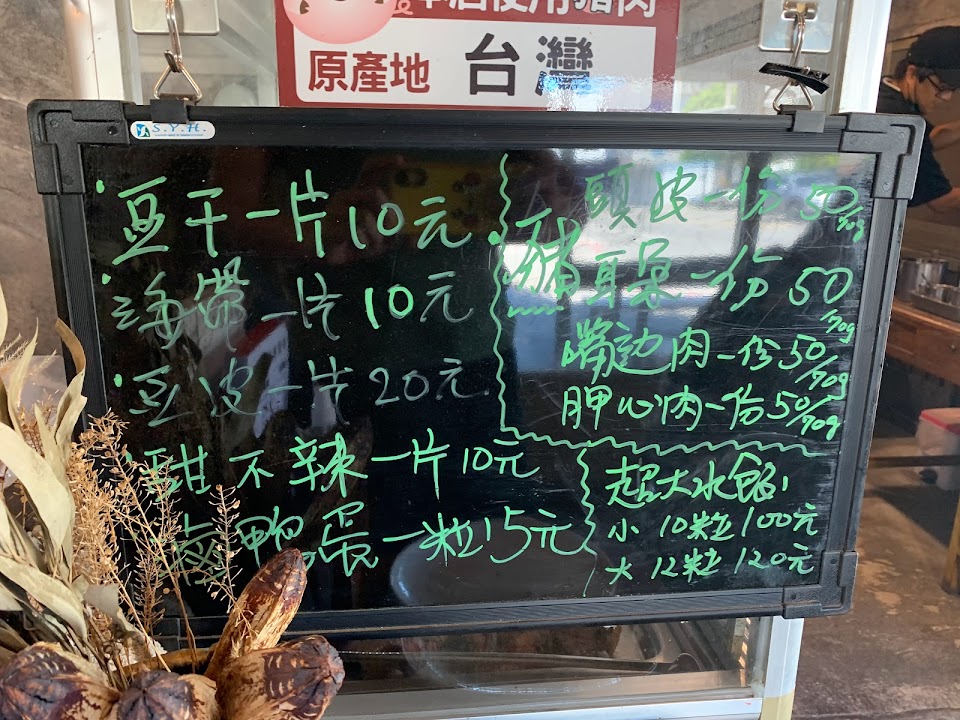 本店使用豬肉
原產地 台灣
S.Y.H.
豆干一片10元
海帶一片10元
豆皮一片20元
甜不辣一片10元
滷鴨蛋一粒15元
豬
頭皮一份50/70g
耳朵一份50/70g
嘴边肉一份50/70g
胛心肉一份50/70g
超大水餃
小 10粒100元
大 12粒 120元